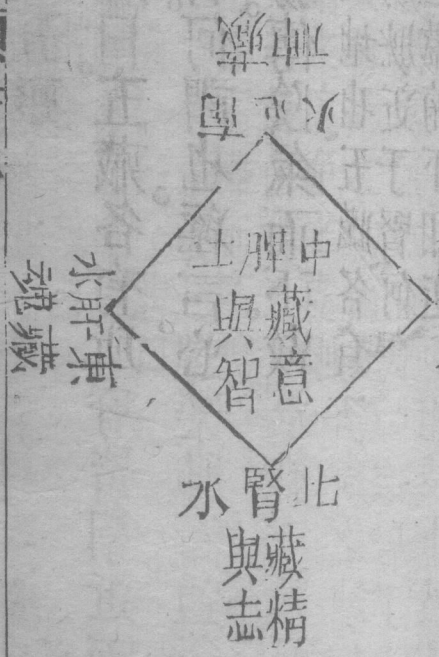 南心火
藏神
東肝木
藏魂
中脾土
藏意
與智
北腎水
藏精
與志